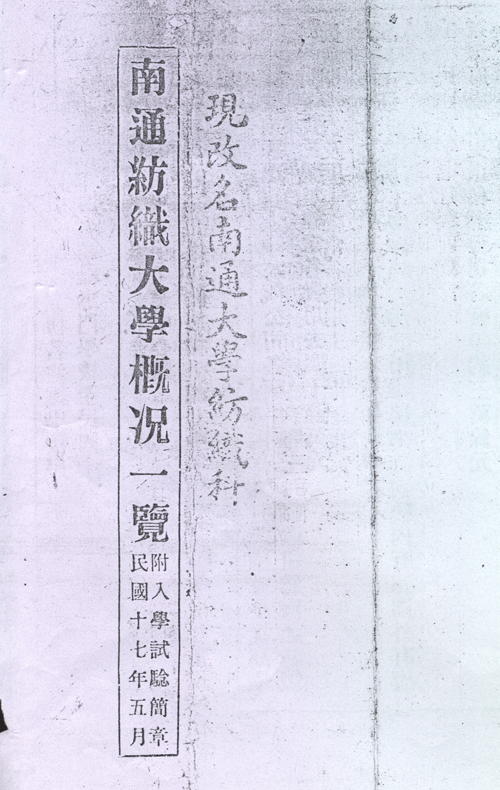 現改名南通大學紡織科
南通紡織大學概况一覽
附入學試驗簡章
民國十七年五月